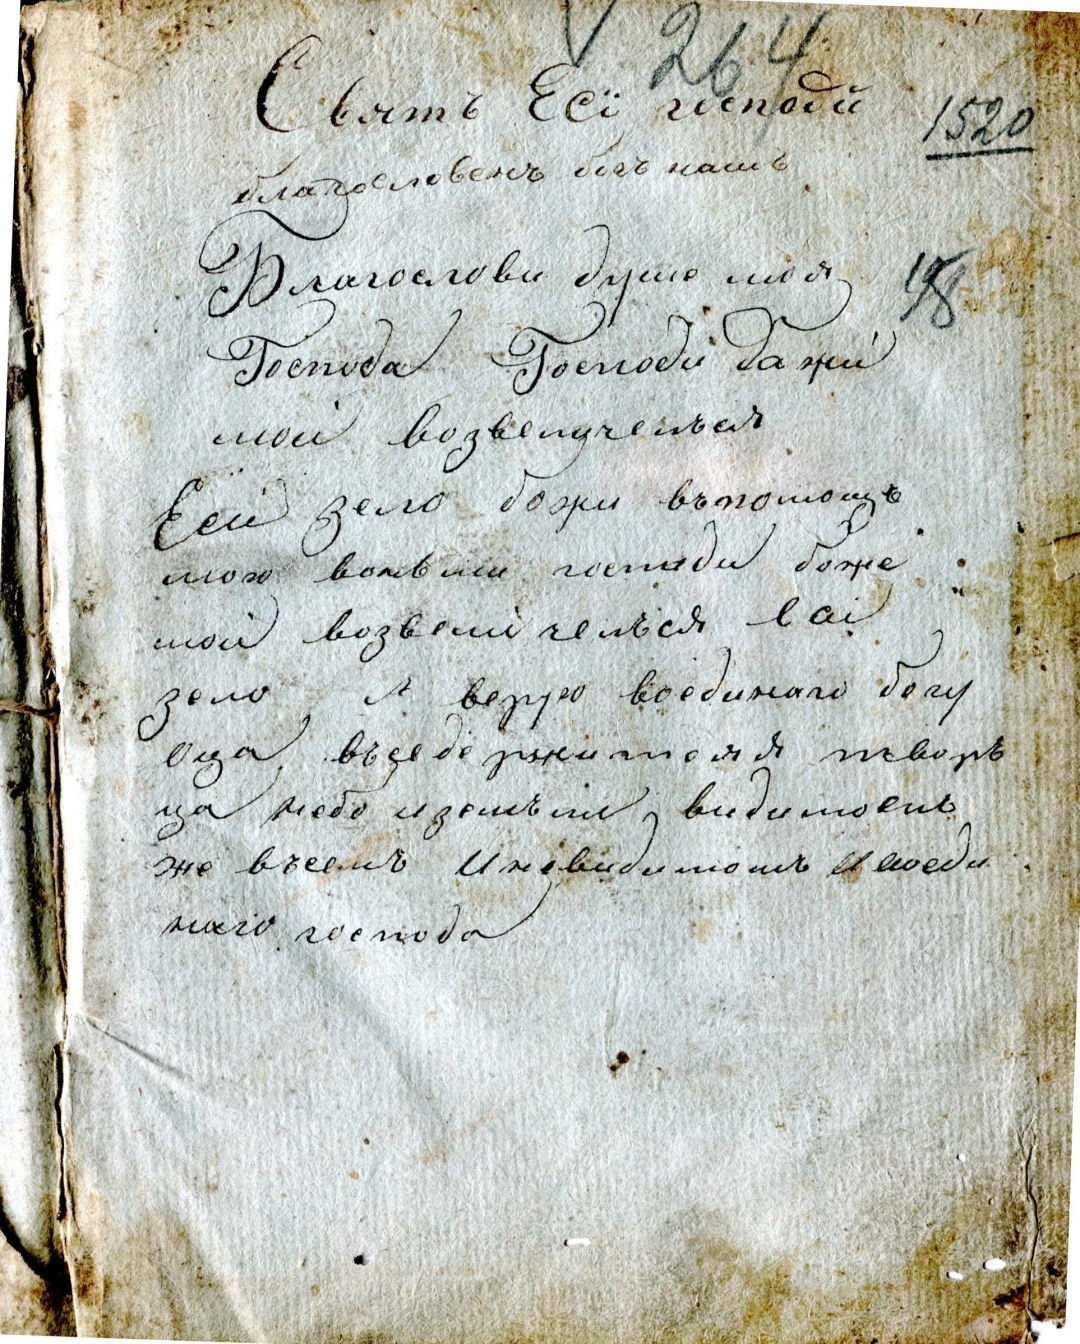 264
Святъ Есї господи
1520
благословенъ богъ нашъ
Благослови душе моя
198
Господа Господи бажи
мои возвелучелъся
Еси зело божи въпомощъ
мою вонъми господи боже
мои возвеличелъся еси
зело И верую воединаго богу
оца въседержителя творъ
ца небо изємъли видимоемъ
же въсемъ Иневидимомъ И воеди
наго господа